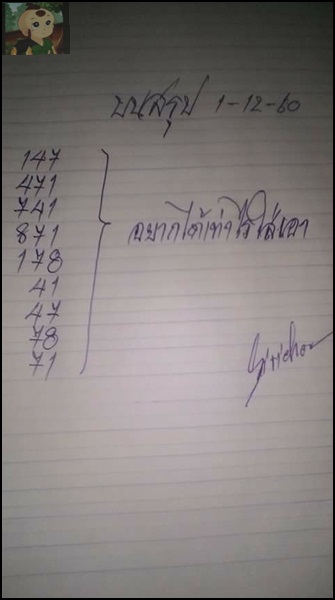 บนสรุป 1-12-60
147
471
741
871
178
41
47
78
71
อยากได้เท่าไร่ใส่เอา